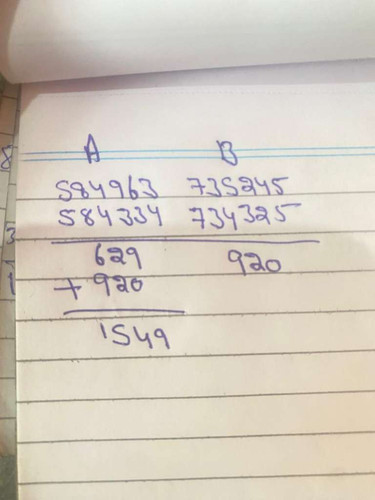 A B
584963 735245
584334 734325
629 920
+ 920
1549